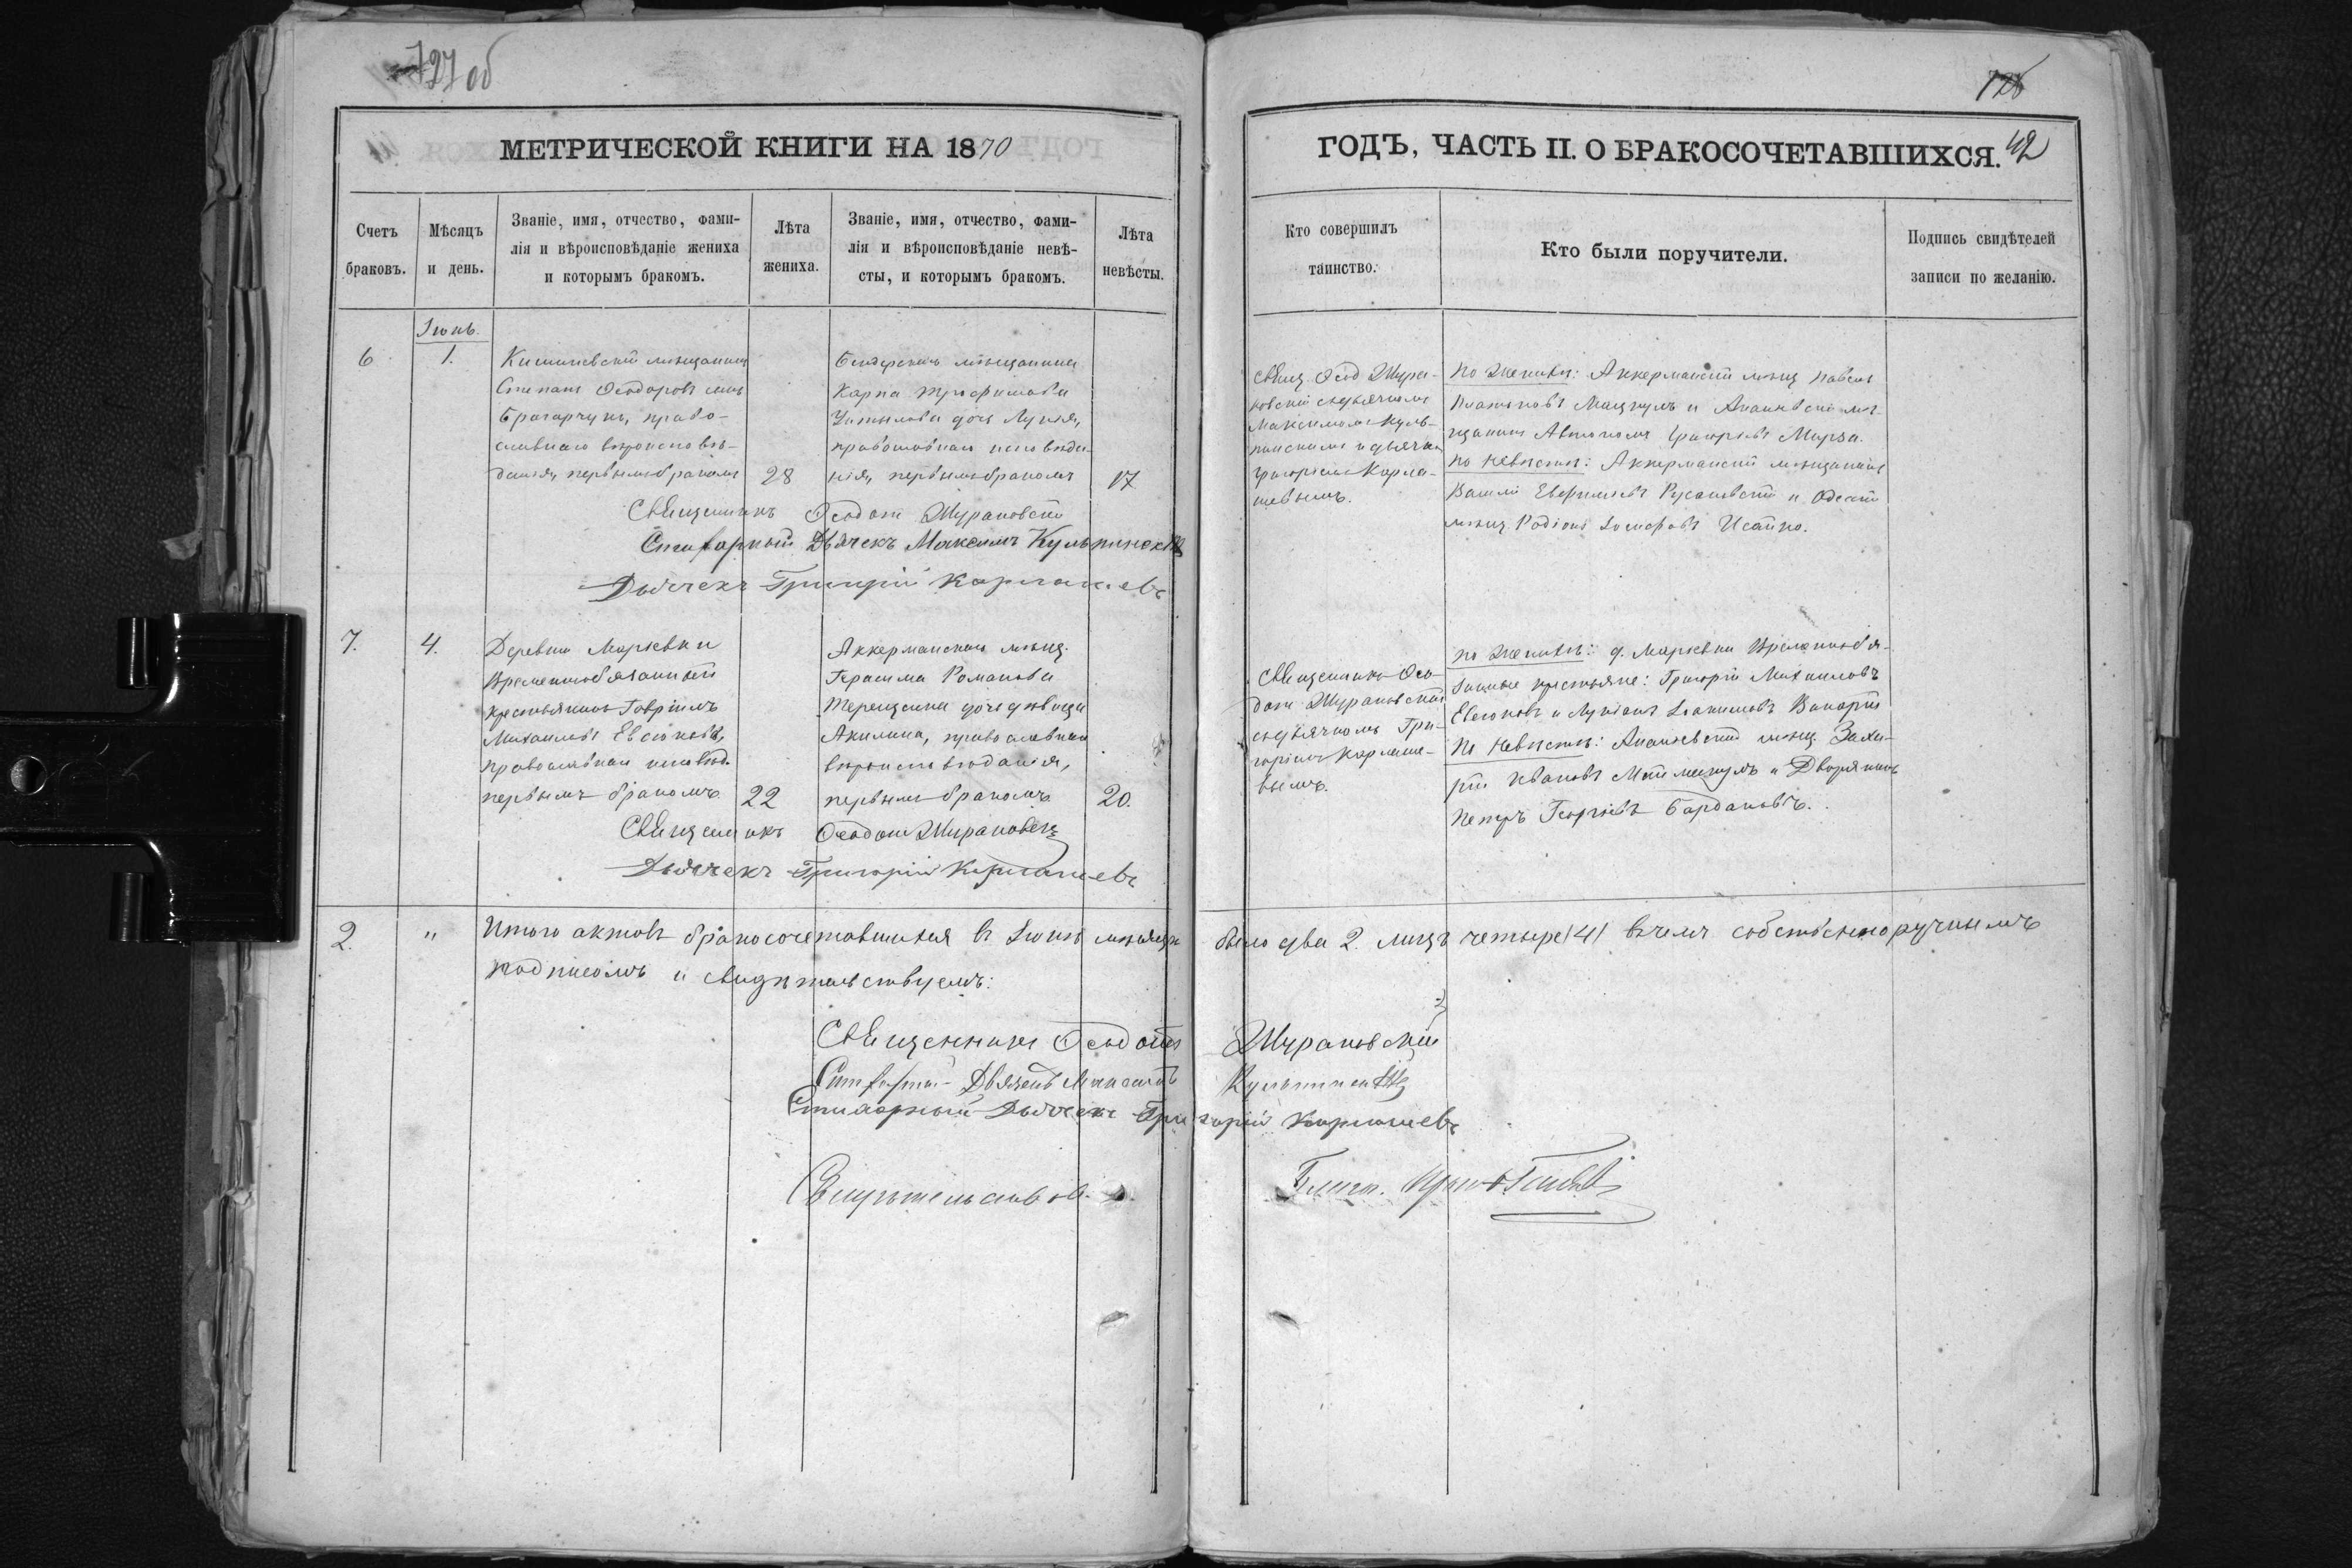 727 об
728
МЕТРИЧЕСКОЙ КНИГИ НА 1870
ГОДЪ, ЧАСТЬ II. О БРАКОСОЧЕТАВШИХСЯ. 42
Счетъ браковъ.
Мѣсяцъ и день.
Званіе, имя, отчество, фами-
лія и вѣроисповѣданіе жениха
и которымъ бракомъ.
Лѣта
жениха.
Званіе, имя, отчество, фами-
лія и вѣроисповѣданіе невѣ-
сты, и которымъ бракомъ.
Лѣта
невѣсты.
Кто совершилъ
таинство.
Кто были поручители.
Подпись свидѣтелей
записи по желанію.
Іюнь.
6
1.
Кишиневскій мѣщанинъ
Степанъ Ѳеодоровъ сынъ
Брагарчукъ, право-
славнаго вѣроисповѣ-
данія, первымъ бракомъ
28
Бендерскаго мѣщанина
Карпа Трофимова
дочь Лукія,
православнаго исповѣда-
нія, первымъ бракомъ
17
Свящ. Ѳеод Жура-
ковскій съ дьячкомъ
Максимомъ Куль-
и дьячк.
Григоріемъ Карла-
шевымъ.
По женихѣ: Аккерманскій мѣщ. Павелъ
Платоновъ и Ананьевскій мѣ-
щанинъ Автономъ Григорьевъ Мирза.
По невѣстѣ: Аккерманскій мѣщанинъ
Василій Евфиміевъ Русановскій и Одесскій
мѣщ. Родіонъ Іосифовъ Исайко.
Священникъ Ѳеодотъ Жураковскій
Стихарный Дьячекъ Максимъ Кульчинскій
Дьячекъ Григорій Карлашевъ
7.
4.
Деревни Марьевки
временнообязанный
крестьянинъ Гавріилъ
Михаиловъ Евсюковъ,
православнаго исповѣд.
первымъ бракомъ
22
Аккерманскаго мѣщ.
Герасима Романова
Терещенка дочь дѣвица
Акилина, православнаго
вѣроисповѣданія,
первымъ бракомъ
20.
Священникъ Ѳео-
дотъ Жураковскій
съ дьячкомъ Гри-
горіемъ Карлаше-
вымъ.
по женихѣ: д. Марьевки временнообя-
занные крестьяне: Григорій Михаиловъ
Евсюковъ и Лукіанъ Іоакимовъ
По невѣстѣ: Ананьевскій мѣщ. Заха-
рій Ивановъ и Дворянинъ
Петръ Георгіевъ Бардаковъ.
Священникъ Ѳеодотъ Жураковскій
Дьячекъ Григорій Карлашевъ
2.
"
Итого актовъ бракосочетавшихся въ Іюнѣ мѣсяцѣ было два 2. лицъ четыре /4/ въ чемъ собственноручнымъ
подписомъ и свидѣтельствуемъ:
Священникъ Ѳеодотъ Жураковскій
Стихарный Дьячекъ Максимъ Кульчинскій
Стихарный Дьячекъ Григорій Карлашевъ
Свидѣтельствов.